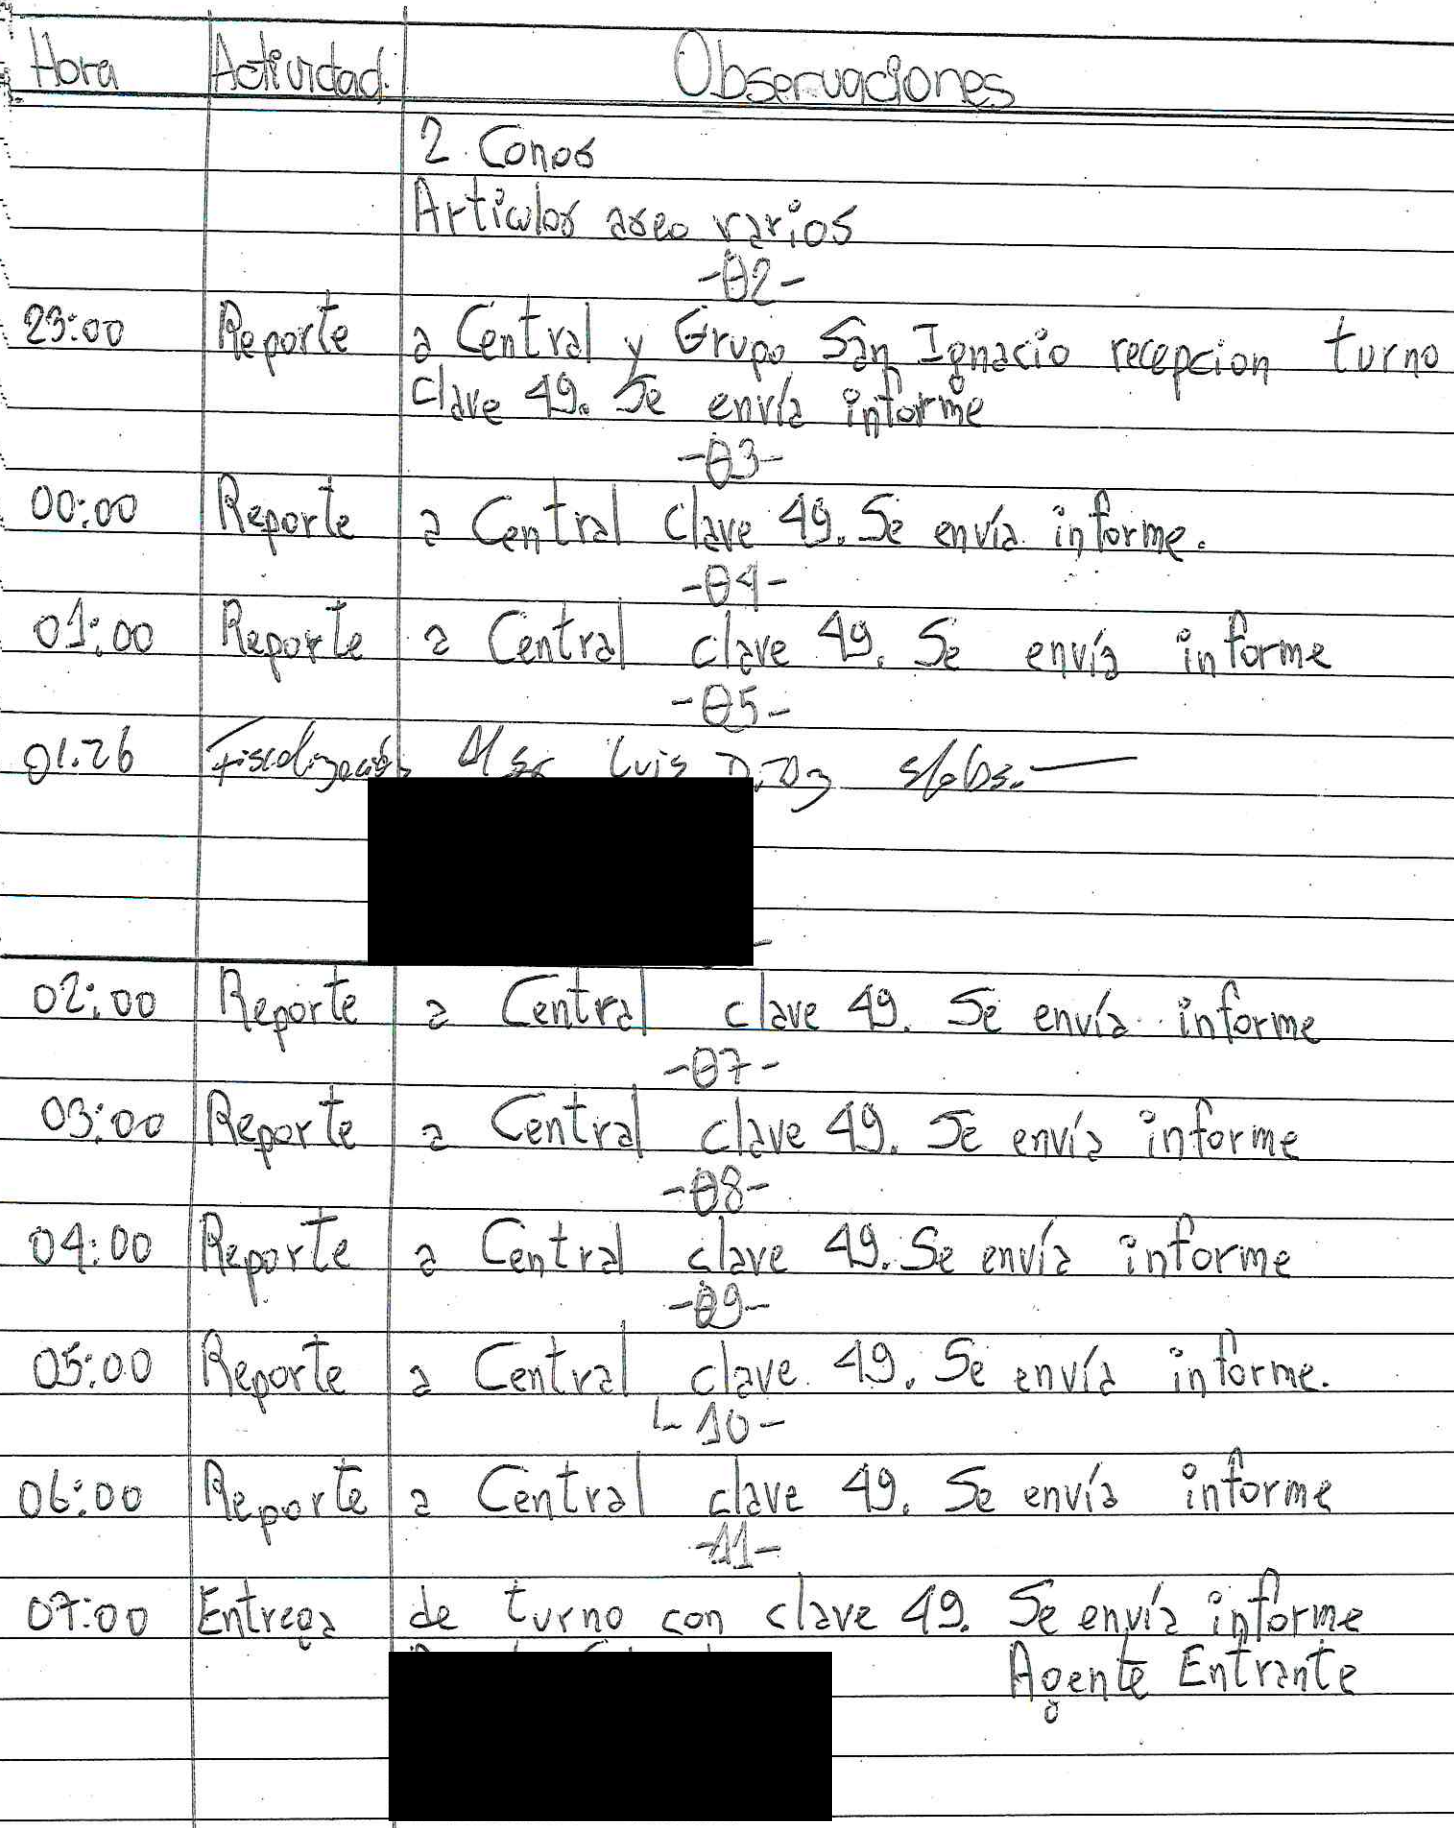 Hora Actividad. Observaciones
2 Conos
Articulos aseo varios
-02-
23:00 Reporte a Central y Grupo San Ignacio recepcion turno
Clave 49. Se envía informe
-03-
00:00 Reporte a Central Clave 49. Se envía informe.
-04-
01:00 Reporte a Central clave 49. Se envía informe
-05-
01.26 Fiscalización Luis s/obs.
02:00 Reporte a Central clave 49. Se envía informe
-07-
03:00 Reporte a Central clave 49. Se envía informe
-08-
04:00 Reporte a Central clave 49. Se envía informe
-09-
05:00 Reporte a Central clave 49. Se envía informe.
-10-
06:00 Reporte a Central clave 49. Se envía informe
-11-
07:00 Entrega de turno con clave 49. Se envía informe
Agente Entrante